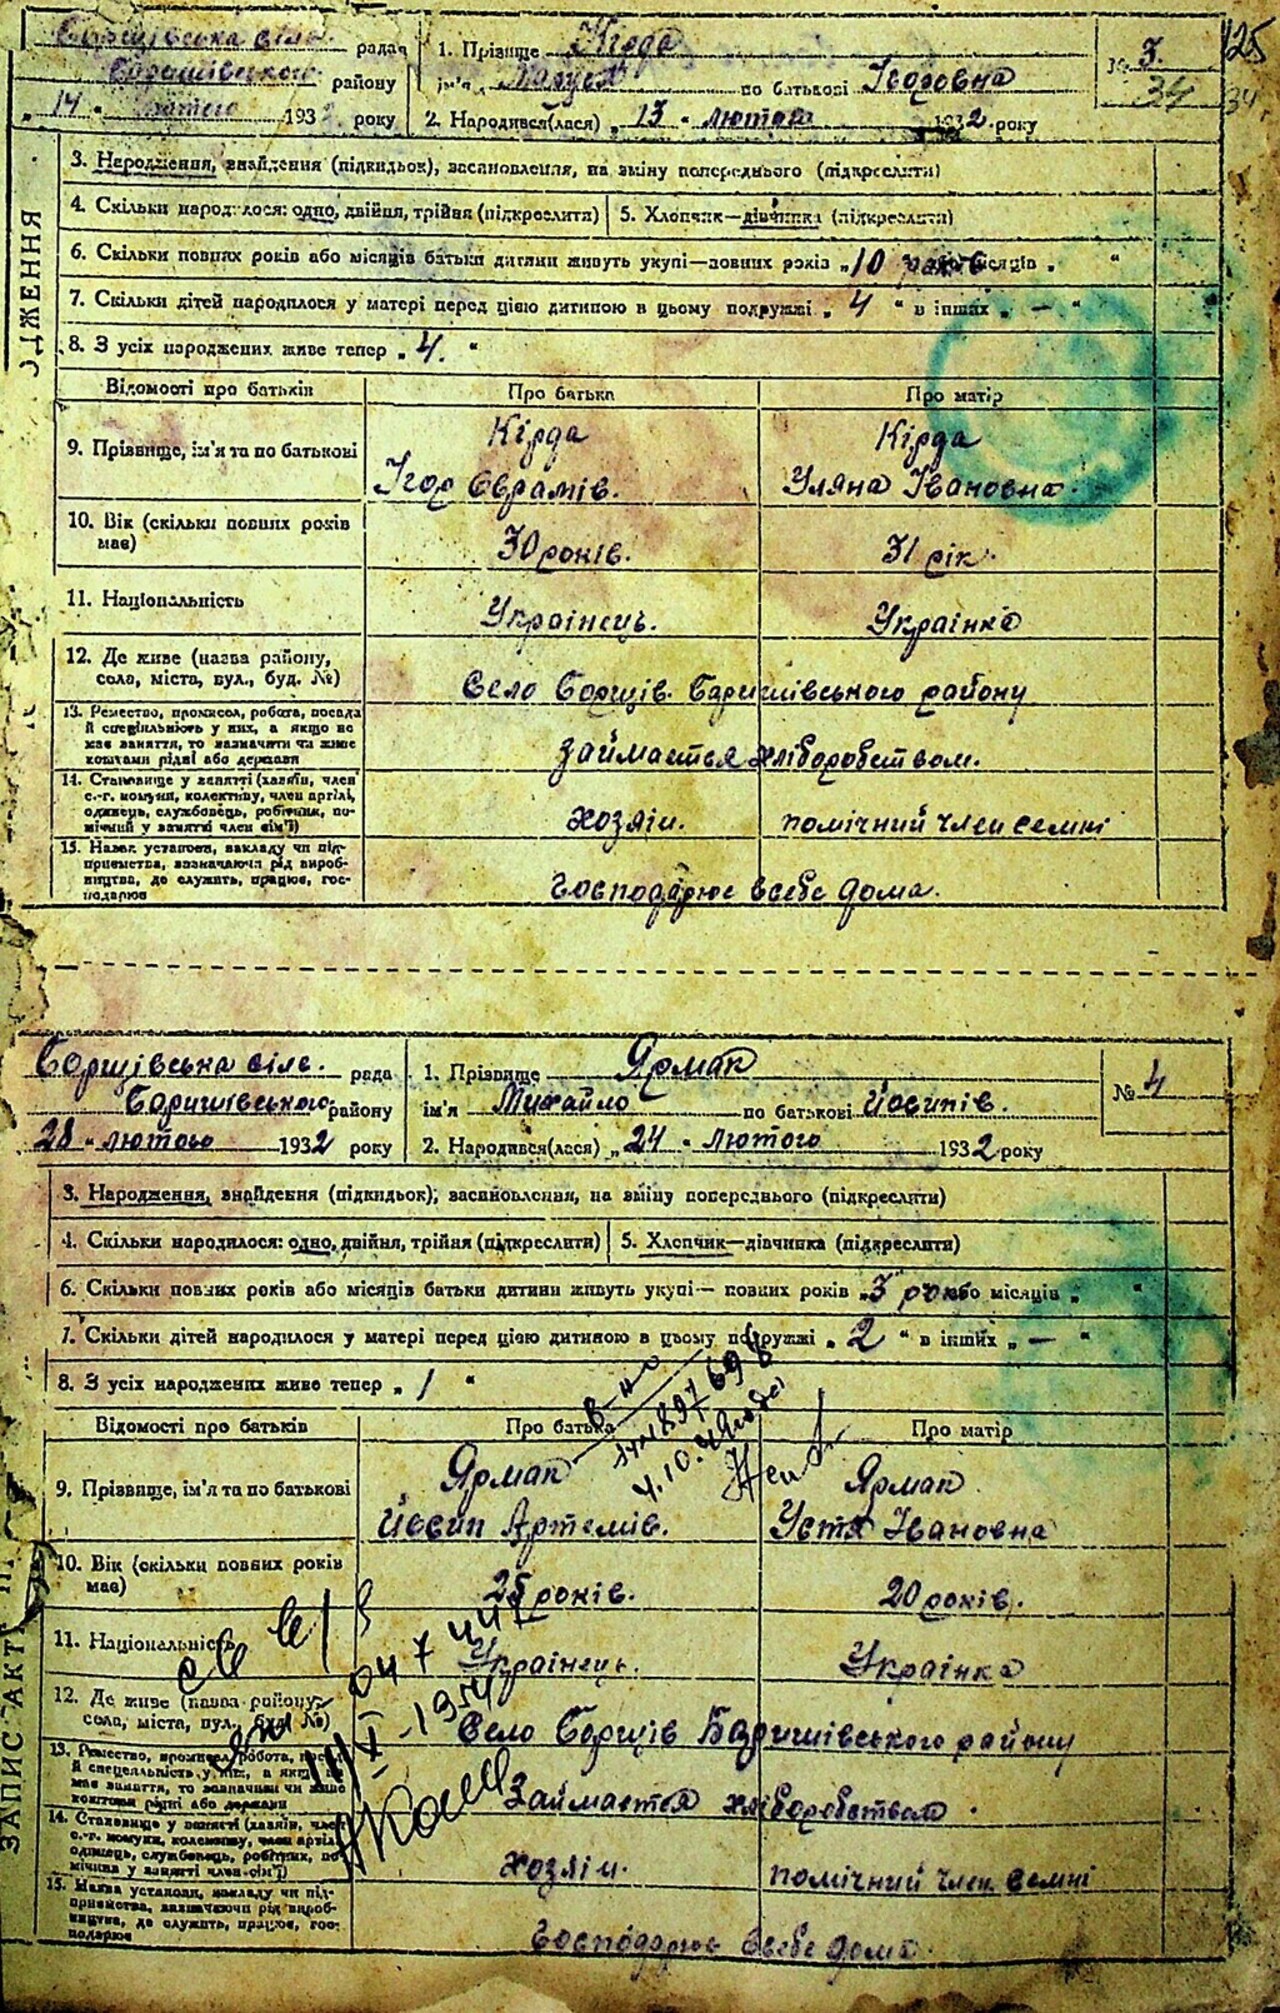 Борщівська віль. рада
1. Прізвище Кірда
№ 3.
125
Баришівськог. району
ім'я по батькові Ігоровна
34 34
„14“ лютого 1932 року
2. Народився(лася) „13“ лютого 1932 року
ОДЖЕННЯ
3. Народження, знайдення (підкидьок), засановлення, на зміну попереднього (підкреслити)
4. Скільки народилося: одно, двійня, трійня (підкреслити)
5. Хлопчик—дівчинка (підкреслити)
6. Скільки повних років або місяців батьки дитини живуть укупі—повних років „10 років місяців „ “
7. Скільки дітей народилося у матері перед цією дитиною в цьому подружжі „ 4 “ в інших „ — “
8. З усіх народжених живе тепер „ 4. “
Відомості про батьків
Про батька
Про матір
9. Прізвище, ім'я та по батькові
Кірда
Ігор Єврамів.
Кірда
Уляна Івановна.
10. Вік (скільки повних років має)
30 років.
31 рік.
11. Національність
Українець.
Українка
12. Де живе (назва району,
села, міста, вул., буд. №)
Село Борщів. Баришівського району
13. Ремество, промисел, робота, посада
й спеціяльність у них, а якщо не
має заняття, то зазначити чи живе
коштами рідні або держави
Займается хліборобством.
14. Становище у занятті (хазяїн, член
с.-г. комуни, колективу, член артілі,
одинець, службовець, робітник, по-
мічний у занятті член сім'ї)
хозяін.
помічний член семні
15. Назва установи, закладу чи під-
приємства, зазначаючи рід вироб-
ництва, де служить, працює, гос-
подарює
Господарює всебе дома.
Борщівська віль. рада
1. Прізвище Ярмак
№ 4
Баришівського району
ім'я Михайло по батькові Йосипів.
28 “ лютого 1932 року
2. Народився(лася) „24“ лютого 1932 року
3. Народження, знайдення (підкидьок), засановлення, на зміну попереднього (підкреслити)
4. Скільки народилося: одно, двійня, трійня (підкреслити)
5. Хлопчик—дівчинка (підкреслити)
6. Скільки повних років або місяців батьки дитини живуть укупі— повних років „3 ро або місяців „ “
7. Скільки дітей народилося у матері перед цією дитиною в цьому подружжі „ 2 “ в інших „ — “
8. З усіх народжених живе тепер „ 1 “
Відомості про батьків
Про батька
Про матір
9. Прізвище, ім'я та по батькові
Ярмак
Йосип Артемів.
Ярмак
Устя Івановна
10. Вік (скільки повних років
має)
25 років.
20 років.
11. Національність
Українець.
Українка
12. Де живе (назва району,
села, міста, вул., буд. №)
Село Борщів Баришівського району
13. Ремество, промисел, робота, посада
й спеціяльність у них, а якщо не
має заняття, то зазначити чи живе
коштами рідні або держави
Займается хліборобством
14. Становище у занятті (хазяїн, член
с.-г. комуни, колективу, член артілі,
одинець, службовець, робітник, по-
мічний у занятті член сім'ї)
хозяін.
помічний член семні
15. Назва установи, закладу чи під-
приємства, зазначаючи рід вироб-
ництва, де служить, працює, гос-
подарює
Господарює всебе дома.
ЗАПИС АКТ